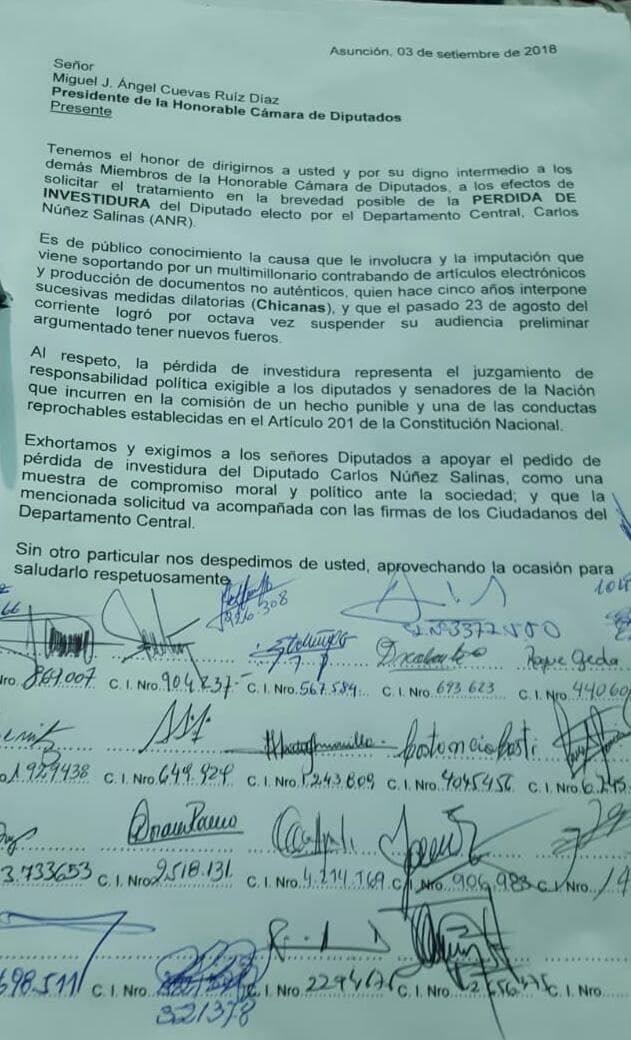 Asunción, 03 de setiembre de 2018
Señor
Miguel J. Ángel Cuevas Ruíz Díaz
Presidente de la Honorable Cámara de Diputados
Presente
Tenemos el honor de dirigirnos a usted y por su digno intermedio a los
demás Miembros de la Honorable Cámara de Diputados, a los efectos de
solicitar el tratamiento en la brevedad posible de la PERDIDA DE
INVESTIDURA del Diputado electo por el Departamento Central, Carlos
Núñez Salinas (ANR).
Es de público conocimiento la causa que le involucra y la imputación que
viene soportando por un multimillonario contrabando de artículos electrónicos
y producción de documentos no auténticos, quien hace cinco años interpone
sucesivas medidas dilatorias (Chicanas), y que el pasado 23 de agosto del
corriente logró por octava vez suspender su audiencia preliminar
argumentado tener nuevos fueros.
Al respeto, la pérdida de investidura representa el juzgamiento de
responsabilidad política exigible a los diputados y senadores de la Nación
que incurren en la comisión de un hecho punible y una de las conductas
reprochables establecidas en el Artículo 201 de la Constitución Nacional.
Exhortamos y exigimos a los señores Diputados a apoyar el pedido de
pérdida de investidura del Diputado Carlos Núñez Salinas, como una
muestra de compromiso moral y político ante la sociedad; y que la
mencionada solicitud va acompañada con las firmas de los Ciudadanos del
Departamento Central.
Sin otro particular nos despedimos de usted, aprovechando la ocasión para
saludarlo respetuosamente
Nro. 861.007 C. I. Nro. 904.237 C. I. Nro. 567.584 C. I. Nro. 693 623 C. I. Nro. 44060
1.929438 C. I. Nro. 649.924 C. I. Nro. 1243.809 C. I. Nro. 4045456 C. I. Nro. 6.245
3.733653 C. I. Nro 2518.131. C. I. Nro. 4.214.769 C. I. Nro. 906.983 C. I. Nro.
698.511 C. I. Nro. C. I. Nro. 2294676 C. I. Nro. C. I. Nro.
321378